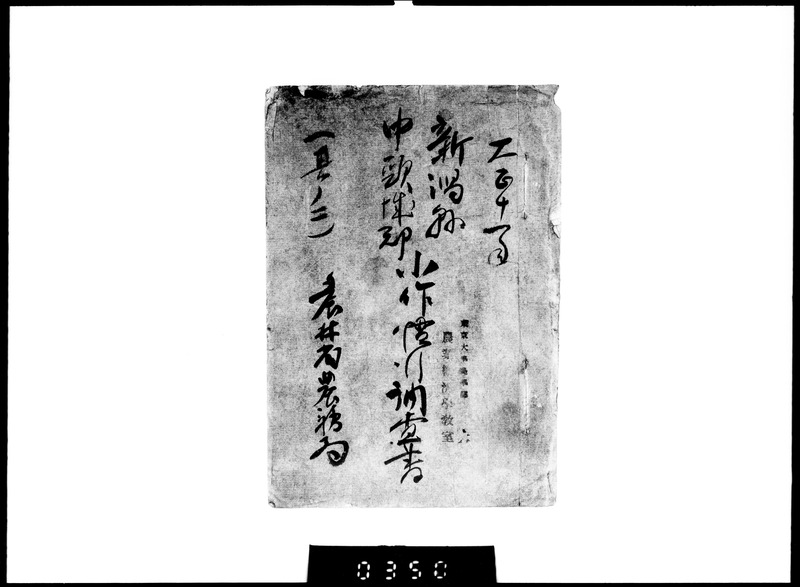 大正十一年
新潟縣
中頸城郡
小作慣行調査書
東京大学農学部
農業経済学教室
(其ノ二)
農林省農務局
0350